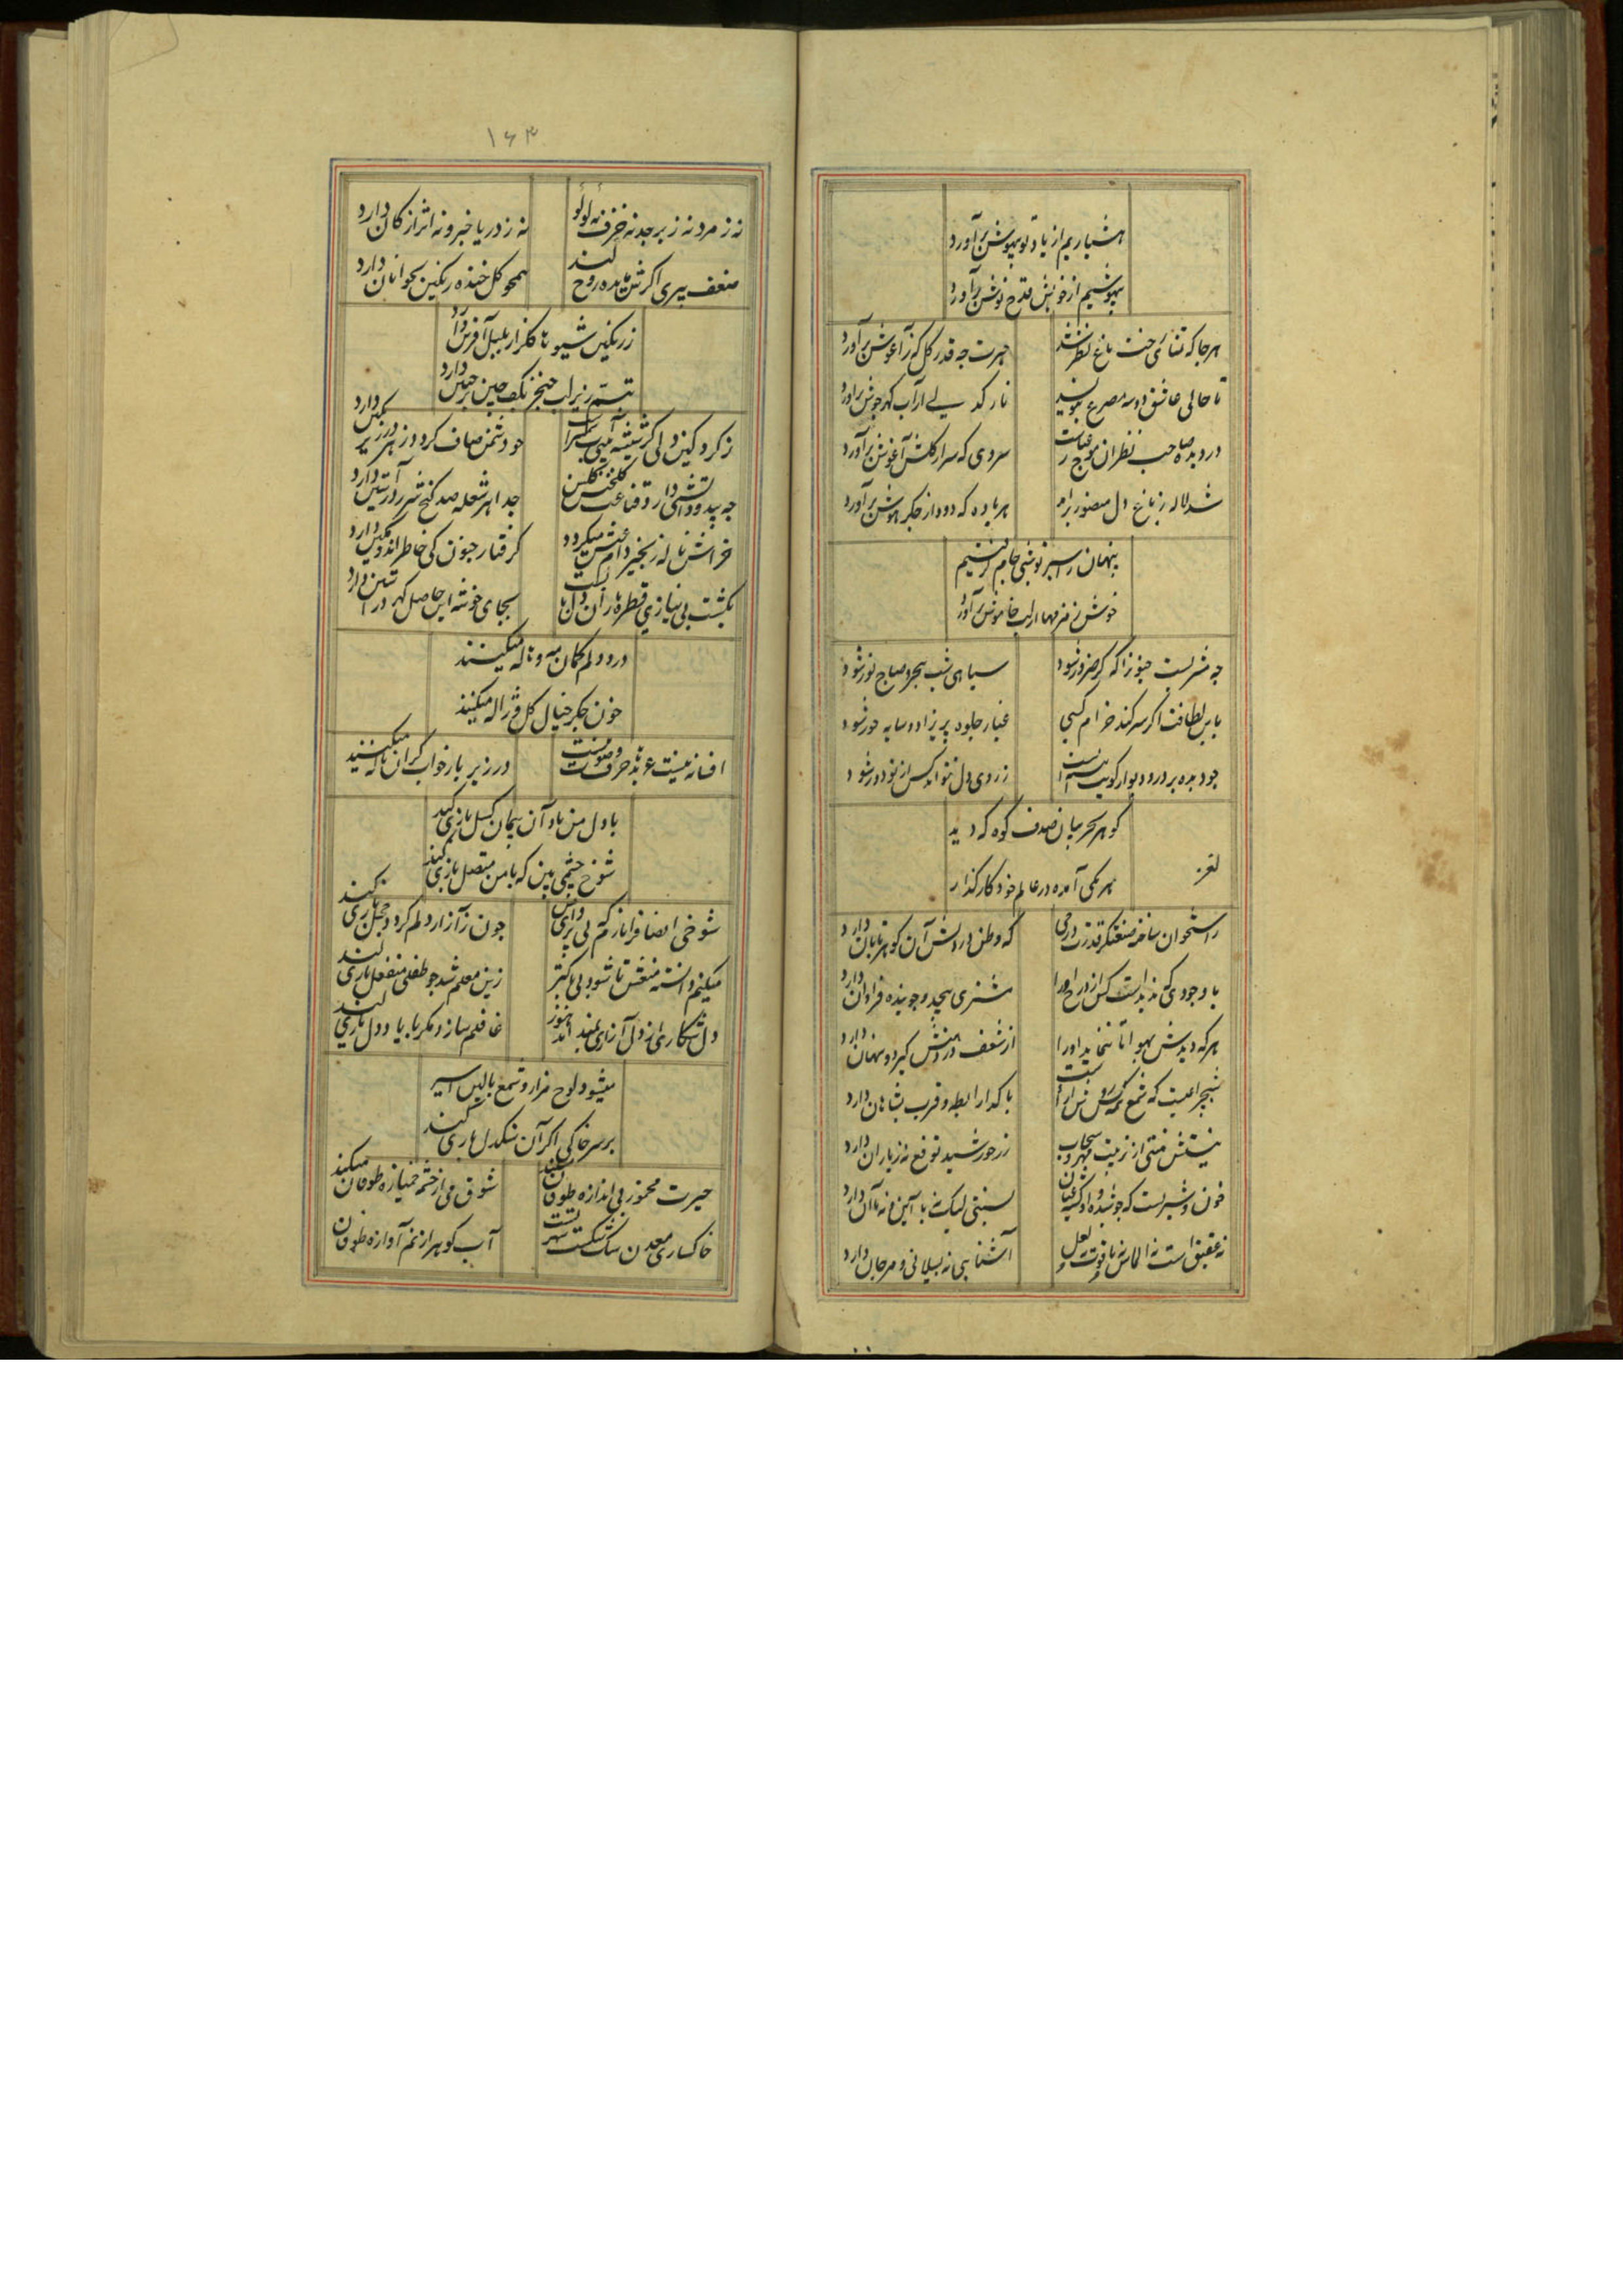 هشیاریم از یاد تو بیهوش برآورد
بیهوشیم از خویش قدح نوش برآورد
هر جا که تماشای رخت باغ نظر شد
حیرت چه قدر گل که ز آغوش برآورد
تا حالی عاشق دو سه مصرع بنویسند
از آب گهر جوش برآورد
در دیده صاحب نظران موج
سروی که سر از گلشن آغوش برآورد
شد لاله ز باغ دل منصور برآمد
هر باده که دود از جگر هوش برآورد
پنهان ز اسیر تو منی جام گرفتیم
خوش زمزمها از لب خاموش برآورد
چه مشربست جنون را که گر ضرور شود
سیاهی شب هجر و صباح نور شود
باین لطافت اگر سر کند خرام کسی
غبار جلوه پریزاد و سایه حور شود
چو دیده بر در و دیوار کویت
ز روی دل نتواند کس از تو دور شود
گوهر بحر بیان صدف کوه که دید
لغز
هر یکی آمده در عالم خود کارگذار
ز استخوان ساخته صنعتگر قدرت درجی
که وطن در دلش آن گوهر تابان دارد
با وجودی که ندیده است کس از درج او را
مشتری بیحد و جوینده فراوان دارد
هر که دیدش بهوا تا ننماید او را
از شعف در دهنش گیرد و پنهان دارد
شبچراغیست که شمع
با گدا رابطه و قرب بشاهان دارد
نیستش منتی از تربیت مهر و سحاب
نه ز خورشید توقع نه ز باران دارد
خون و شیریست که جوشیده
نسبتی لیک نه با این و نه با آن دارد
نه عقیق است نه الماس نه یاقوت نه لعل
آشنایی نه بسیلانی و مرجان دارد
۱۶۳
نه زمرد نه زبرجد نه خزف نه لولو
نه ز دریا خبر و نه اثر از کان دارد
ضعف پیری اگرش مانده روح کند
همچو گل خنده رنگین بجوانان دارد
ز رنگین شیوه‌ها گلزار بلبل آفرین دارد
تبسم زیر لب خنجر بکف چین بر جبین دارد
ز گرد کینه دل گر شسته
چو دشمن صاف گردد زهر در زیر نگین دارد
جدا هر شعله صد گنج شرر در آستین دارد
خراش ناله زنجیر دام عیش میگردد
گرفتار جنون کی خاطر اندوهگین دارد
بکشت بی نیازی قطره باران
بجای خوشه این حاصل گهر در آستین دارد
درد دلم گمان مه و ناله میکنند
خون جگر خیال گل و ژاله میکنند
افسانه نیست عربده حرف و صوت نیست
در زیر بار خواب گران ناله میکنند
با دل من یاد آن پیمان گسل بازی کند
شوخ چشمی بین که با من متصل بازی کند
شوخی انصاف را نازم که بی پروای من
چون ز آزار دلم گردد خجل بازی کند
میکنم دانسته منعش تا شود بی باکتر
زین معلم شد چو طفلی منفعل بازی کند
دل شکاری از دل آزاری نمیداند هنوز
غافلم سازد مگر با یاد دل بازی کند
میشود لوح مزار و شمع بالین اسیر
بر سر خاکی اگر آن سنگدل بازی کند
حیرت مخمور بی اندازه طوفان میکند
شوق می از خشم خمیازه طوفان میکند
خاکساری معدن سنگ شکست
آب گوهر از نم آوازه طوفان